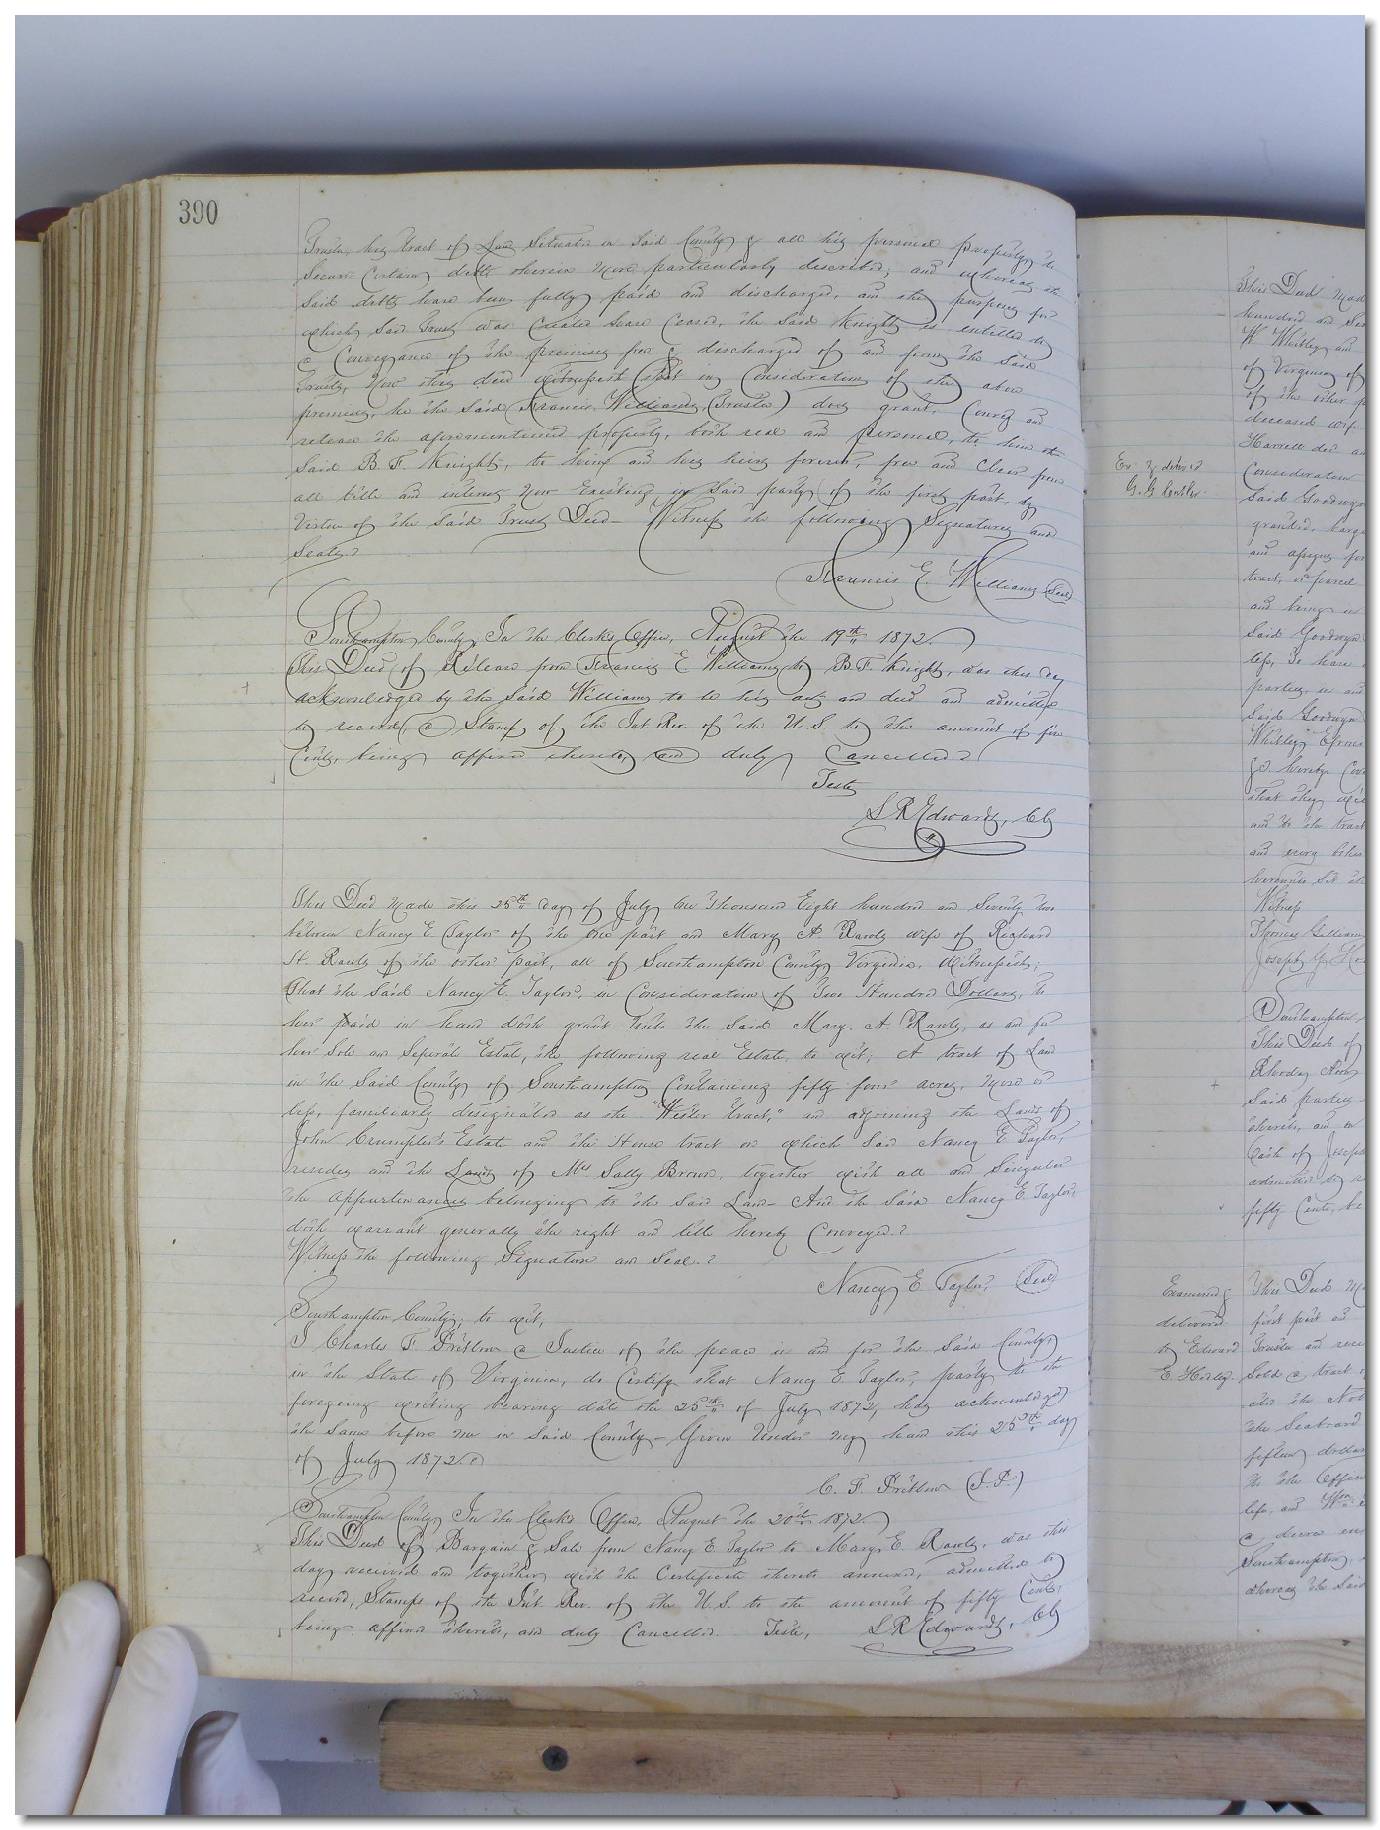 390
Trustee, his tract of Land Situate in Said County & all his personal property, to
Secure Certain debts therein more particularly described; and whereas the
Said debts have been fully paid and discharged, and the purposes for
which said Trust was created have ceased, the said Knight is entitled to
a Conveyance of the premises free & discharged of and from the Said
Trusts, Now this deed witnesseth that in Consideration of the above
premises, he the said Francis E. Williams, (Trustee) does grant, Convey and
release the aforementioned property, both real and personal, to him the
Said B. F. Knight, to him and his heirs forever, free and Clear from
all title and interest Now Existing in Said party of the first part, by
Virtue of the Said Trust Deed— Witness the following Signatures and
Seals.
Francis E. Williams Seal
Southampton County, In the Clerk's Office, August the 19th 1872.
This Deed of Release from Francis E. Williams to B. F. Knight, was this day
acknowledged by the Said Williams to be his act and deed and admitted
to record, a Stamp of the Int. Rev. of the U. S. to the amount of five
Cents, being affixed thereto, and duly Cancelled.
Teste
L R Edwards, Clk
This Deed Made this 25th day of July One Thousand Eight hundred and Seventy two
between Nancy E Taylor of the One part and Mary A. Rawls wife of Richard
H. Rawls of the other part, all of Southampton County Virginia, Witnesseth;
That the Said Nancy E. Taylor, in Consideration of Two Hundred Dollars, to
her paid in hand doth grant Unto the Said Mary. A. Rawls, as and for
her Sole and Seperate Estate, the following real Estate, to wit; A tract of Land
in the Said County of Southampton Containing fifty four acres, More or
less, familiarly designated as the "Wester tract," and adjoining the Lands of
John Crumpler's Estate and the Home tract on which Said Nancy E Taylor,
resides and the Lands of Mrs Sally Brown, together with all and Singular
the Appurtenances belonging to the Said Land— And the Said Nancy E. Taylor,
doth warrant generally the right and title hereby Conveyed.
Witness the following Signature and Seal.
Nancy E Taylor, Seal
Southampton County; to wit,
I Charles F. Pretlow a Justice of the peace in and for the Said County,
in the State of Virginia, do Certify that Nancy E. Taylor, party to the
foregoing writing bearing date the 25th of July 1872, has acknowledged
the Same before me in Said County— Given Under my hand this 25th day
of July 1872.
C. F. Pretlow (J. P.)
Southampton County, In the Clerk's Office, August the 20th 1872
This Deed of Bargain & Sale from Nancy E Taylor to Mary E. Rawls, was this
day received and together with the Certificate thereto annexed, admitted to
record, Stamps of the Int. Rev. of the U. S. to the amount of fifty Cents,
being affixed thereto, and duly Cancelled. Teste, L R Edwards, Clk
This Deed Mad
hundred and Sev
W. Whitley and
of Virginia of
of the other p
deceased wife
Harrell dec an
Consideration
Said Goodwyn
granted, barga
and assigns for
tract, or parcel
and being in
Said Goodwyn
less, To have
parties, in and
Said Goodwyn
Whitley
do hereby Cov
that they
and to the tract
and every other
hereunto Set th
Witness
Thomas Gilliam
Joseph G. H
Southampton
This Deed of
Said parties
thereto, and
Oath of Joseph
admitted to
fifty Cents, be
Examined &
delivered
to Edward
This Deed M
first part and
Trustee and
Sold a tract
the Seaboard
fifteen dollars
to the Office
life, and
a decree
Southampton,
whereas the Said